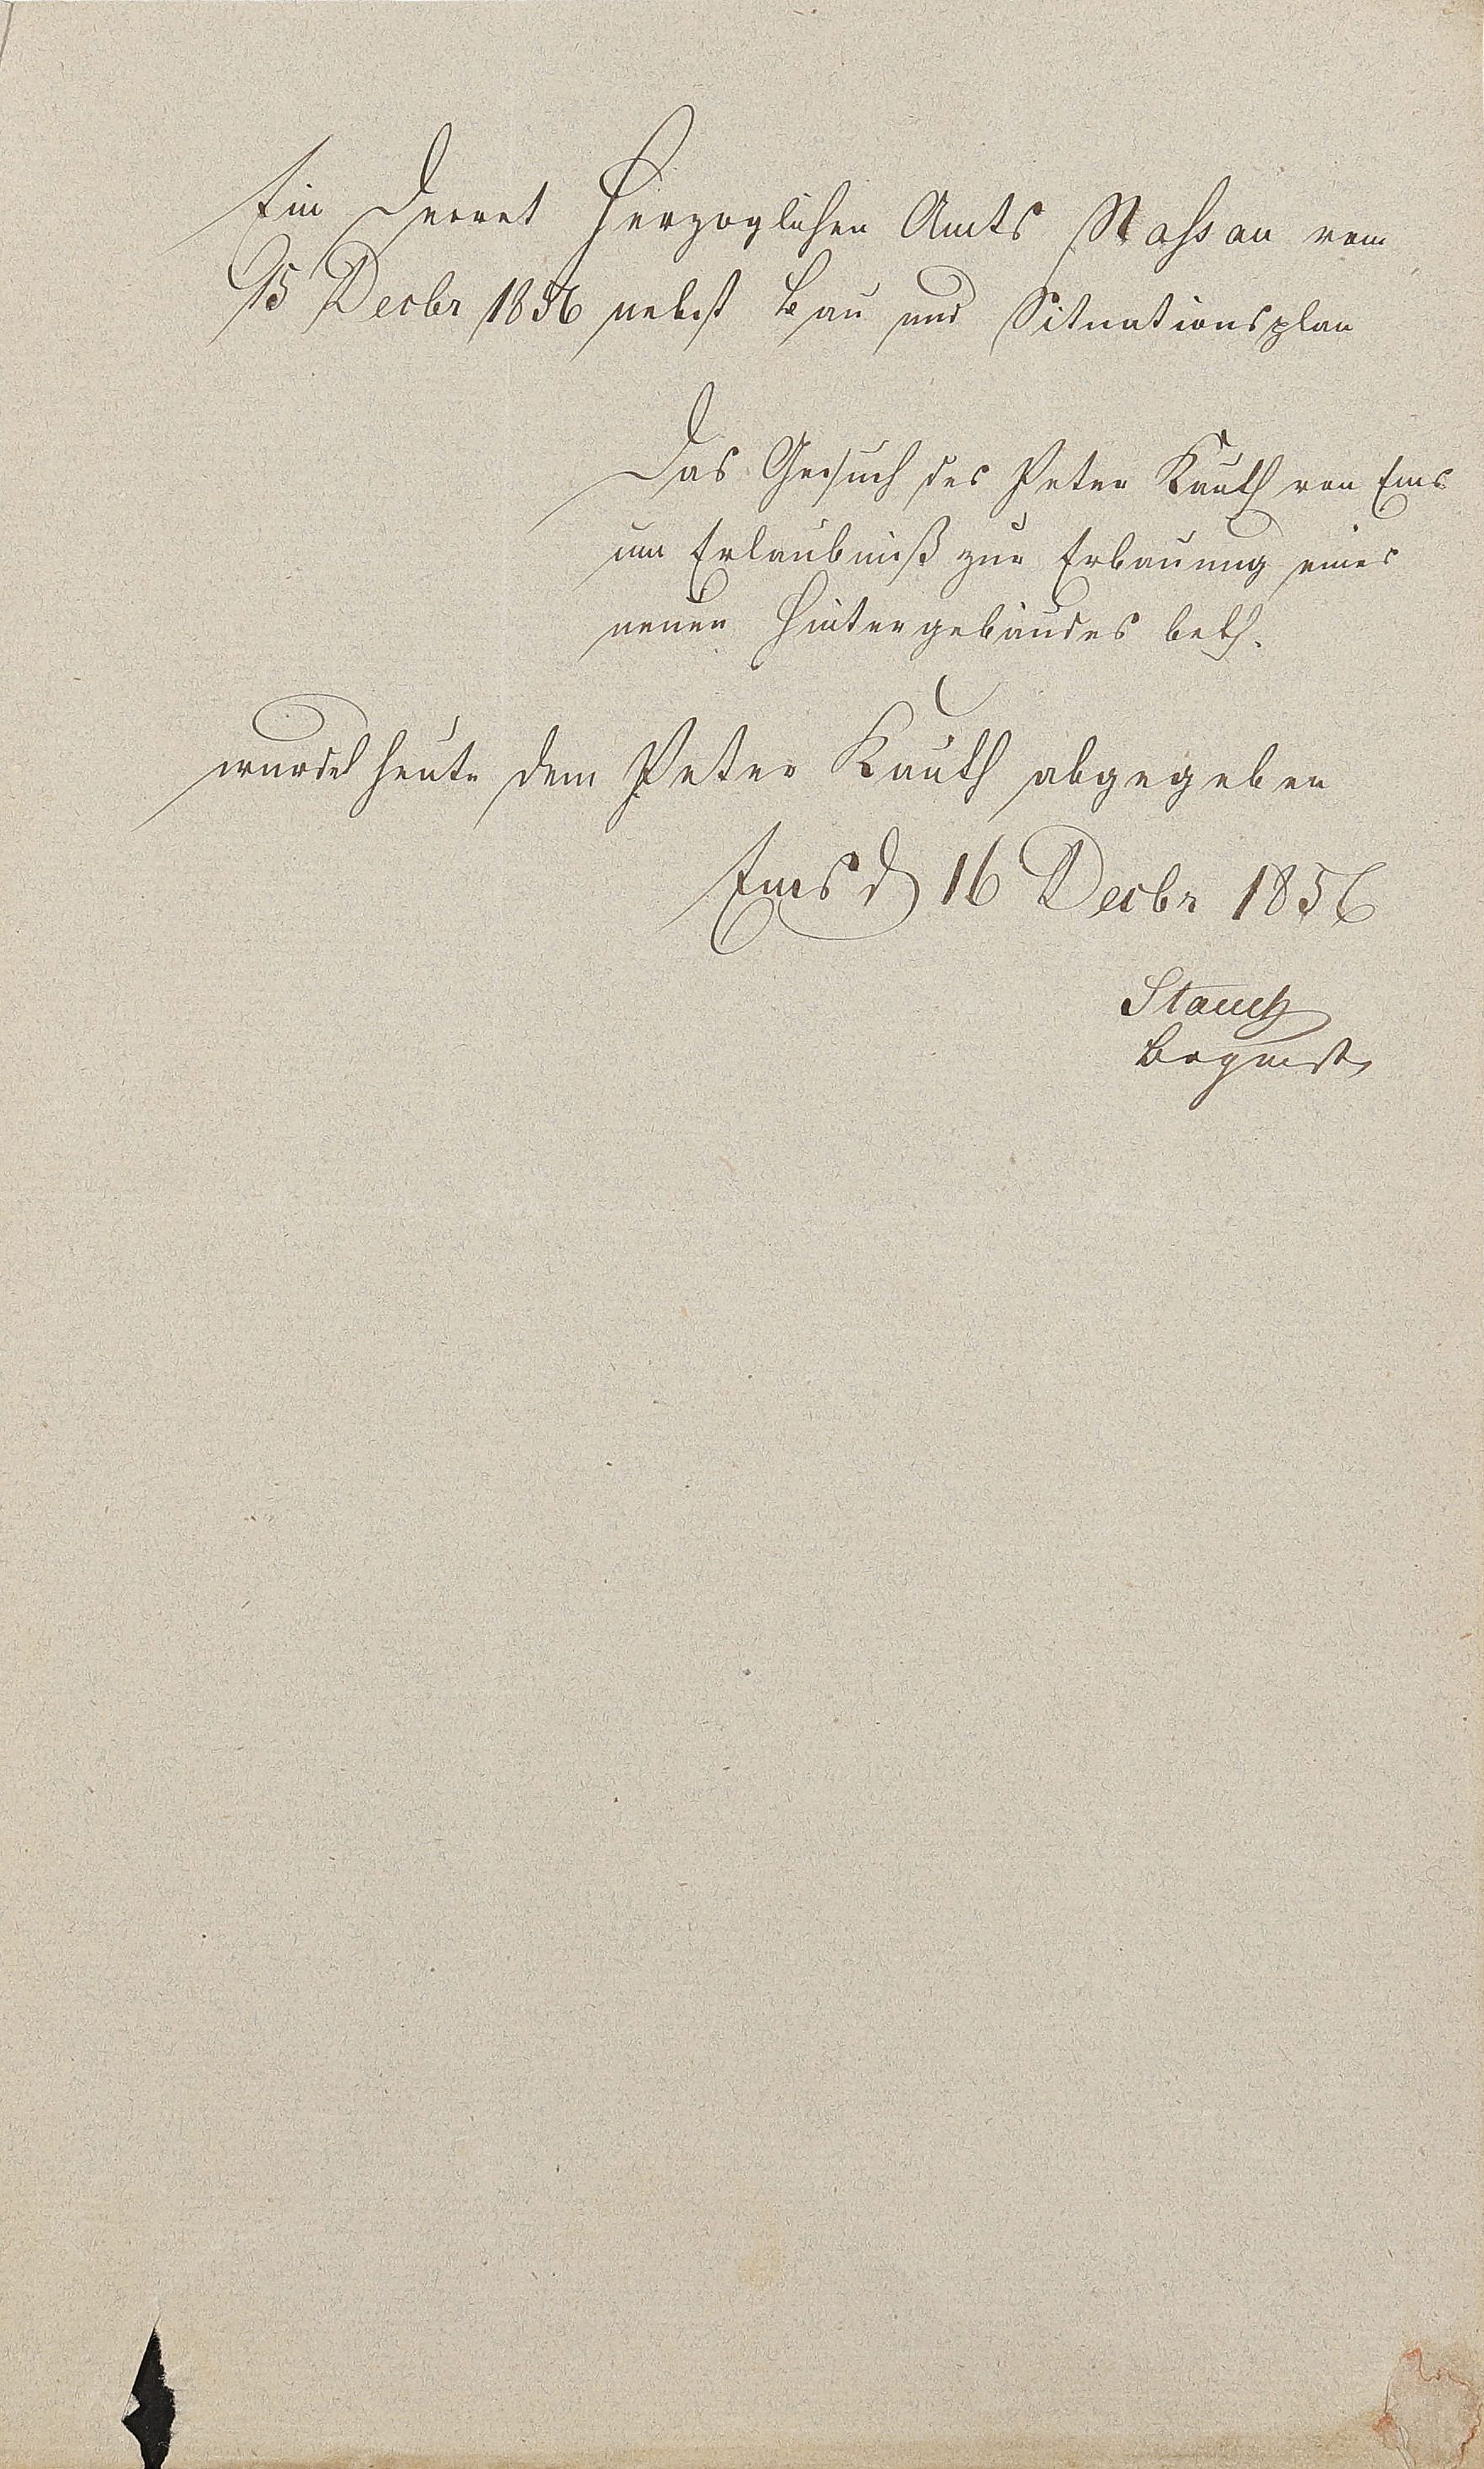 Ein Decret Herzoglichen Amts Nassau vom
15 Decbr 1856 nebst Bau und Situationsplan
Das Gesuch des Peter Kauth von Ems
um Erlaubniß zur Erbauung eines
neuen Hintergebäudes betr.
wurde heute dem Peter Kauth abgegeben
Ems d 16 Decbr 1856
Brgmstr